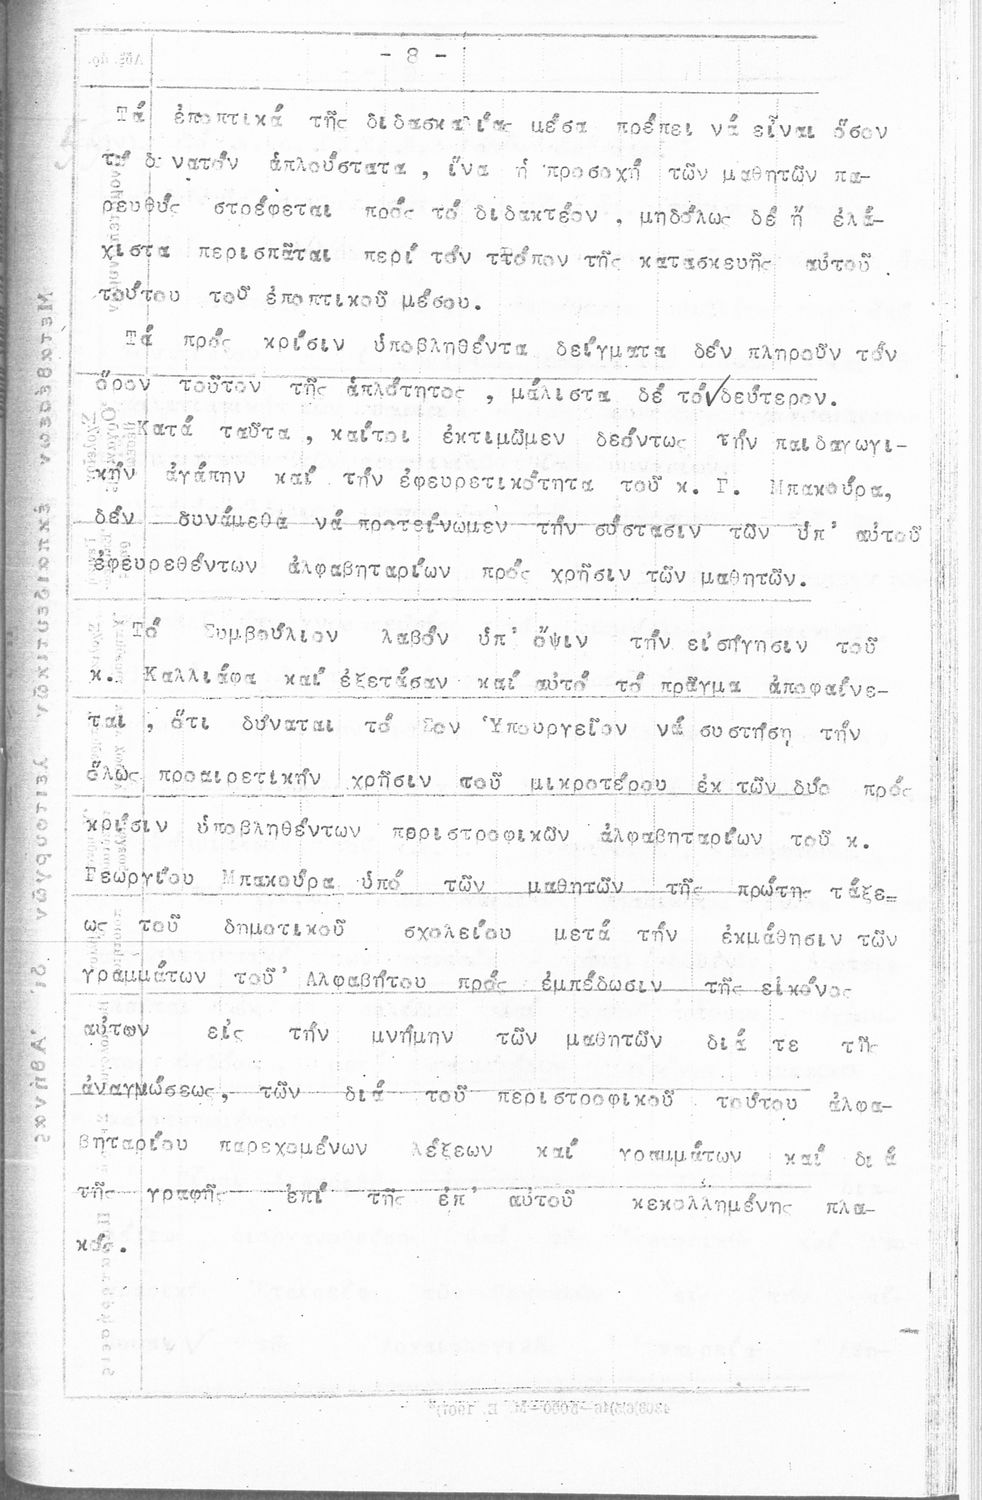 - 8 -
Τά ἐποπτικά τῆς διδασκαλίας μέσα πρέπει νά εἶναι ὅσον
τό δυνατόν ἁπλούστατα , ἵνα ἡ προσοχή τῶν μαθητῶν πα-
ρευθύς στρέφεται πρός τό διδακτέον , μηδόλως δέ ἤ ἐλά-
χιστα περισπᾶται περί τόν τρόπον τῆς κατασκευῆς αὐτοῦ
τούτου τοῦ ἐποπτικοῦ μέσου.
Τά πρός κρίσιν ὑποβληθέντα δείγματα δέν πληροῦν τόν
ὅρον τοῦτον τῆς ἁπλότητος , μάλιστα δέ τό δεύτερον.
Κατά ταῦτα , καίτοι ἐκτιμῶμεν δεόντως τήν παιδαγωγι-
κήν ἀγάπην καί τήν ἐφευρετικότητα τοῦ κ. Γ. Μπακούρα,
δέν δυνάμεθα νά προτείνωμεν τήν σύστασιν τῶν ὑπ' αὐτοῦ
ἐφευρεθέντων ἀλφαβηταρίων πρός χρῆσιν τῶν μαθητῶν.
Τό Συμβούλιον λαβόν ὑπ' ὄψιν τήν εἰσήγησιν τοῦ
κ. Καλλιάφα καί ἐξετάσαν καί αὐτό τό πρᾶγμα ἀποφαίνε-
ται , ὅτι δύναται τό Σον Ὑπουργεῖον νά συστήσῃ τήν
ὅλως προαιρετικήν χρῆσιν τοῦ μικροτέρου ἐκ τῶν δύο πρός
κρίσιν ὑποβληθέντων περιστροφικῶν ἀλφαβηταρίων τοῦ κ.
Γεωργίου Μπακούρα ὑπό τῶν μαθητῶν τῆς πρώτης τάξε=
ως τοῦ δημοτικοῦ σχολείου μετά τήν ἐκμάθησιν τῶν
γραμμάτων τοῦ Ἀλφαβήτου πρός ἐμπέδωσιν τῆς εἰκόνος
αὐτων εἰς τήν μνήμην τῶν μαθητῶν διά τε τῆς
ἀναγνώσεως, τῶν διά τοῦ περιστροφικοῦ τούτου ἀλφα-
βηταρίου παρεχομένων λέξεων καί γραμμάτων καί διά
τῆς γραφῆς ἐπί τῆς ἐπ' αὐτοῦ κεκολλημένης πλα-
κός.